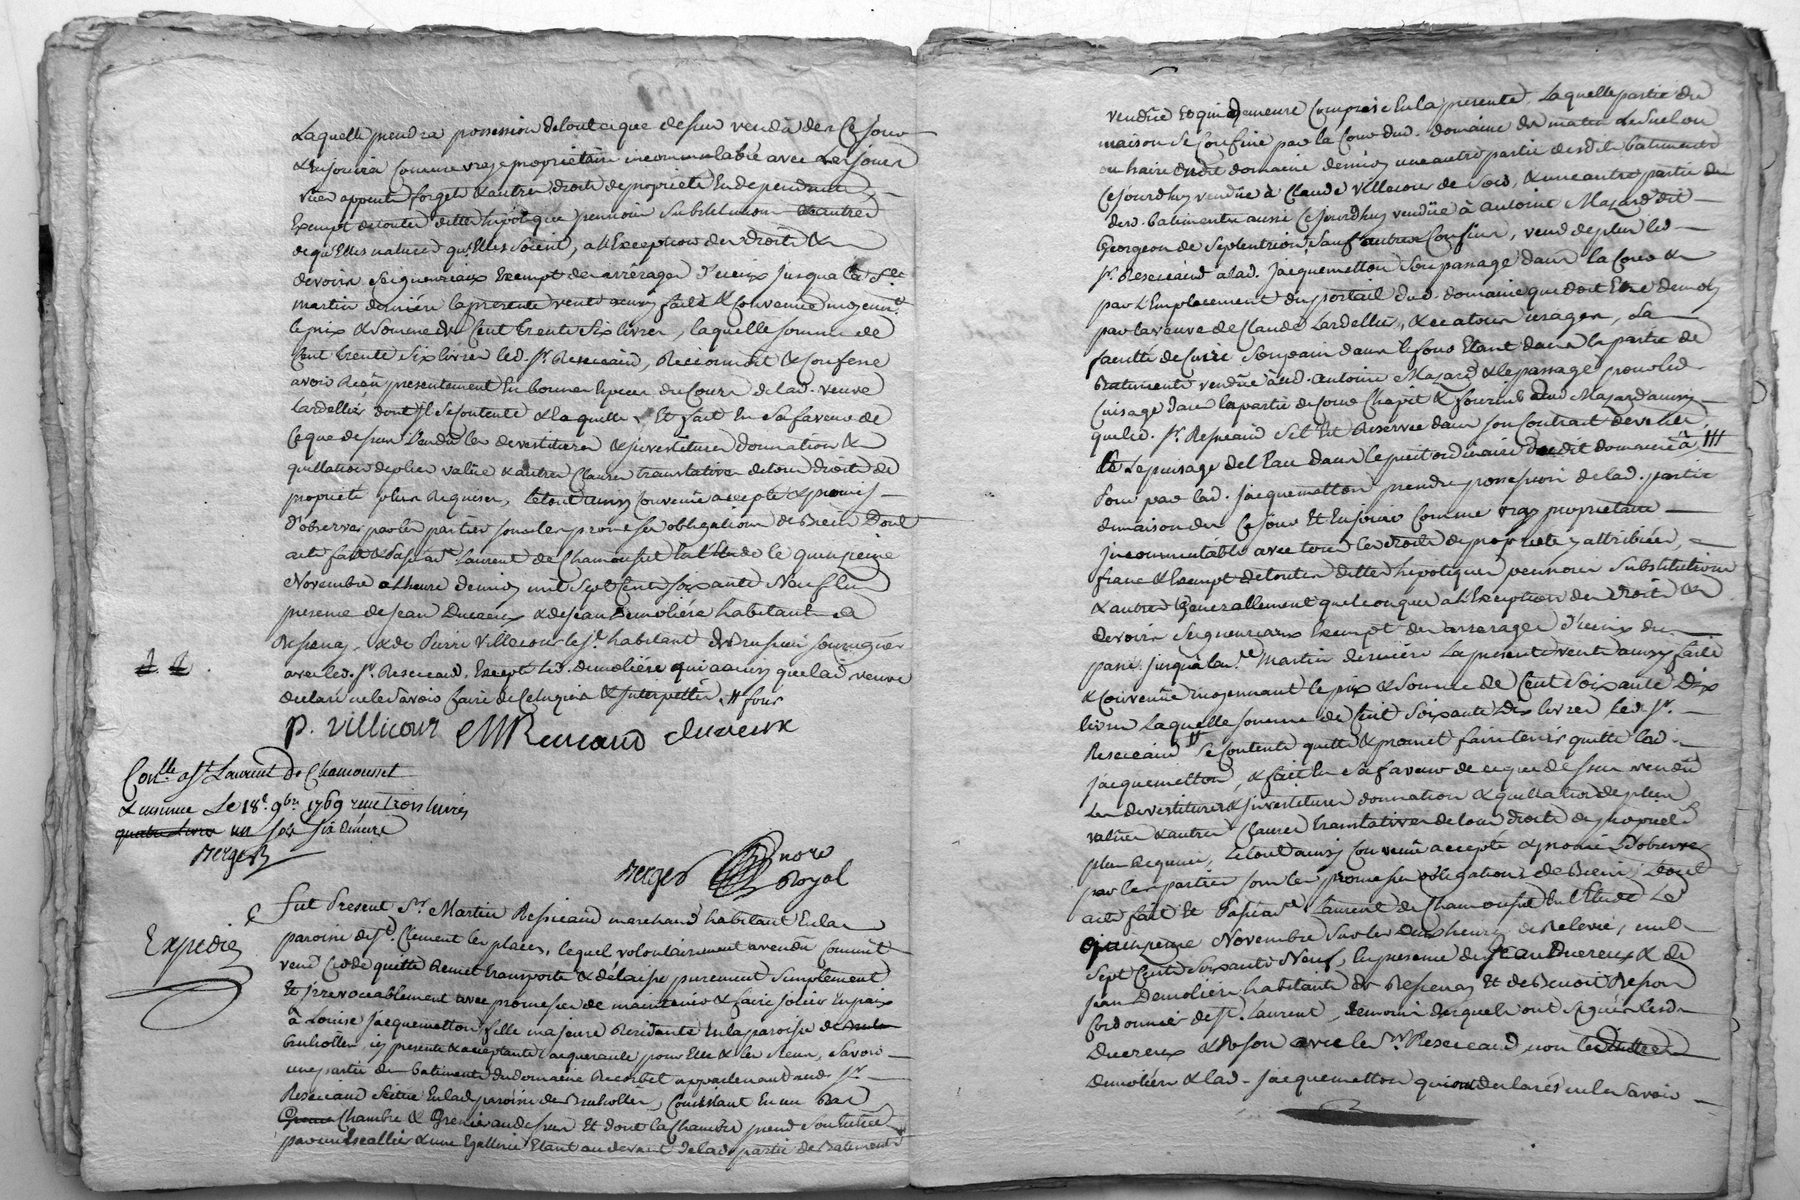 Laquelle prendra possession detout ceque dessus vendû des Ce jour
& Enjouira Comme vray propriétaire incommutable avec Lesjours
vües appents forgets & autres droits depropriété Endependants
Exempt detoutes dettes hipotèques pennoin Substitution & autres
dequ'Elles natures qu'Elles soient, al'Exception des droits &
devoirs seigneuriaux Exempt des arrérages d'iceux jusqua la St
martin derniére la presente vente ainsy faite & Convenüe moyennt
leprix & Somme de Cent trente Six livres, laquelle somme de
Cent trente Six livres led. Sr. Resseicaud, Reconnoit & Confesse
avoir Reçu presentement En bonnes Especes du Cours delad. veuve
Lardellier dont il Secontente & la quitte & Et fait En Safaveur de
Ceque dessus vendu les devestitures & investitures donnation &
quittation deplus valüe & autres Clauses translatives detous droits de
propriété plus Requises, letout ainsy Convenu accepté & promis
d'observer par les parties sous les promesses obligations de Biens Dont
acte fait & Passé a St Laurent de Chamousset En l'Etude le quinzieme
Novembre a l'heure demidy mil Sept Cent Soixante Neuf En
presence de Jean Ducreux & de Jean Demoliére habitants de
Ressenay, & de Pierre Villecour le Je habitant de Brussieu soussignés
avec led. Sr. Resseicaud, Excepté led. demoliére qui ainsy que lad. veuve
declaré ne le savoir faire de Ce Enquis & Interpellés. // fous
P. Villicour MResicaud ducreux
Conlle a St Laurent De Chamousset
& insinué Le 18e. 9bre 1769 reçu trois livres
quatre livres un sols six deniers
Berger
Berger nore
Royal
Expedié
fut Present Sr. Martin Ressicaud marchand habitant En la
paroisse de St. Clement les places, lequel volontairement a vendu Comme il
vend Cede quitte Remet transporte & délaisse purement Simplement
Et Irrevocablement avec promesse de maintenir & faire joüir En paix
à Louise Jacquemetton fille majeure Residante En la paroisse de
brulliolles, icy presente & acceptante acquerante pour Elle & les siens, Savoir
une partie des batiments du domaine Recorbet appartenant aud. Sr.
Resseicaud Scitué En lad. paroisse de Brulliolles, Consistant En un Bas
Chambre & Grenier au dessus Et dont la Chambre prend Son Entrée
par un Escallier & une Gallerie Etant au devant de lad. partie de Batiments
vendüe Et qui demeure Comprise En la presente, Laquelle partie du
maison Se Confine par la Cour dud. domaine de matin Le Suel ou
ou haire dudit domaine de midy une autre partie desd. batiments
Cejourdhuy vendüe à Claude Villecour de Soir, & une autre partie de
desd. batiments aussi Cejourdhuy vendüe à antoine Mazard dit
Georgeon de Septentrion, Sauf autres Confins, vend de plus led.
Sr. Resseicaud a lad. Jacquemetton Son passage dans la Cour &
par L'Emplacement du portail dud. domaine qui doit Etre demoly
par la veuve de Claude Lardellier, & ce a tous usages, La
faculté de Cuire Son pain dans le four Etant dans la partie de
Batiments vendüe aud. antoine Mazard & le passage pour led.
Cuisage dans la partie de Cour Chapit & fournil dud. Mazard ainsy
que led. Sr. Resseicaud S'est Et Reservée dans son Contract de vente,
& Le puisage del'Eau dans le puit ordinaire dudit domaine à ///
Pour par lad. Jacquemetton prendre possession de lad. partie
de maison des Ce jour Et En joüir Comme vray proprietaire
Incommutable avec tous les droits de propriété y attribués,
franc & Exempt de toutes dettes hipotèques pennoin Substitution
& autres Generallement quelconques a l'Exception des droits &
devoirs Seigneuriaux Exempt des arrerages d'iceux du
passé jusqu'à la St Martin derniére La presente vente ainsy faite
& Convenüe moyennant le prix & Somme de Cent Soixante Dix
livres Laquelle Somme de Cent Soixante Dix livres Led. Sr.
Resseicaud Se Contente quitte & promet faire tenir quitte lad.
Jacquemetton, & fait En Sa faveur de ce que dessus vendû
Les devestitures & investitures donnation & quittation de plus
valüe & autres Clauses translatives de tous droits de propriété
plus Requises, Le tout ainsy Convenu accepté & promis D'observer
par les parties sous les promesses obligations de Biens, Dont
acte fait Et Passé a St Laurent de Chamousset En l'Etude Le
quinzieme Novembre Sur les deux heures de Relevée, mil
Sept Cent Soixante Neuf, En presence de Jean Ducreux & de
Jean Demoliére habitants de Ressenay Et de Benoit Reson
Cordonnier de St. Laurent, temoins desquels ont signés lesd.
Ducreux & Reson avec le Sr. Resseicaud, non led.
demoliére & lad. Jacquemetton qui ont declarés ne le savoir